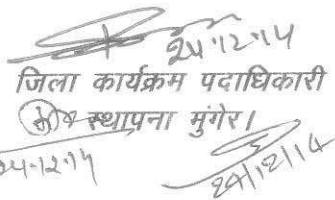 24.12.14
जिला कार्यक्रम पदाधिकारी
स्थापना मुंगेर।
24.12.14
24/12/14